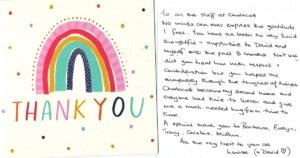 THANK YOU
To all the staff at Chalacot
No words can ever express the gratitude
I feel. You have all been so very kind
thoughtful + supportive to David and
myself over the past months. Not only
did you treat him with respect +
consideration but you helped me
immensely through the toughest of times
Chalacot became my second home and
everyone had time to listen and give
me a much needed hug from time to
time.
A special thank you to Barbara, Evelyn,
Tracy, Caroline,
All the very best to you all
Louise (+ David ♡)